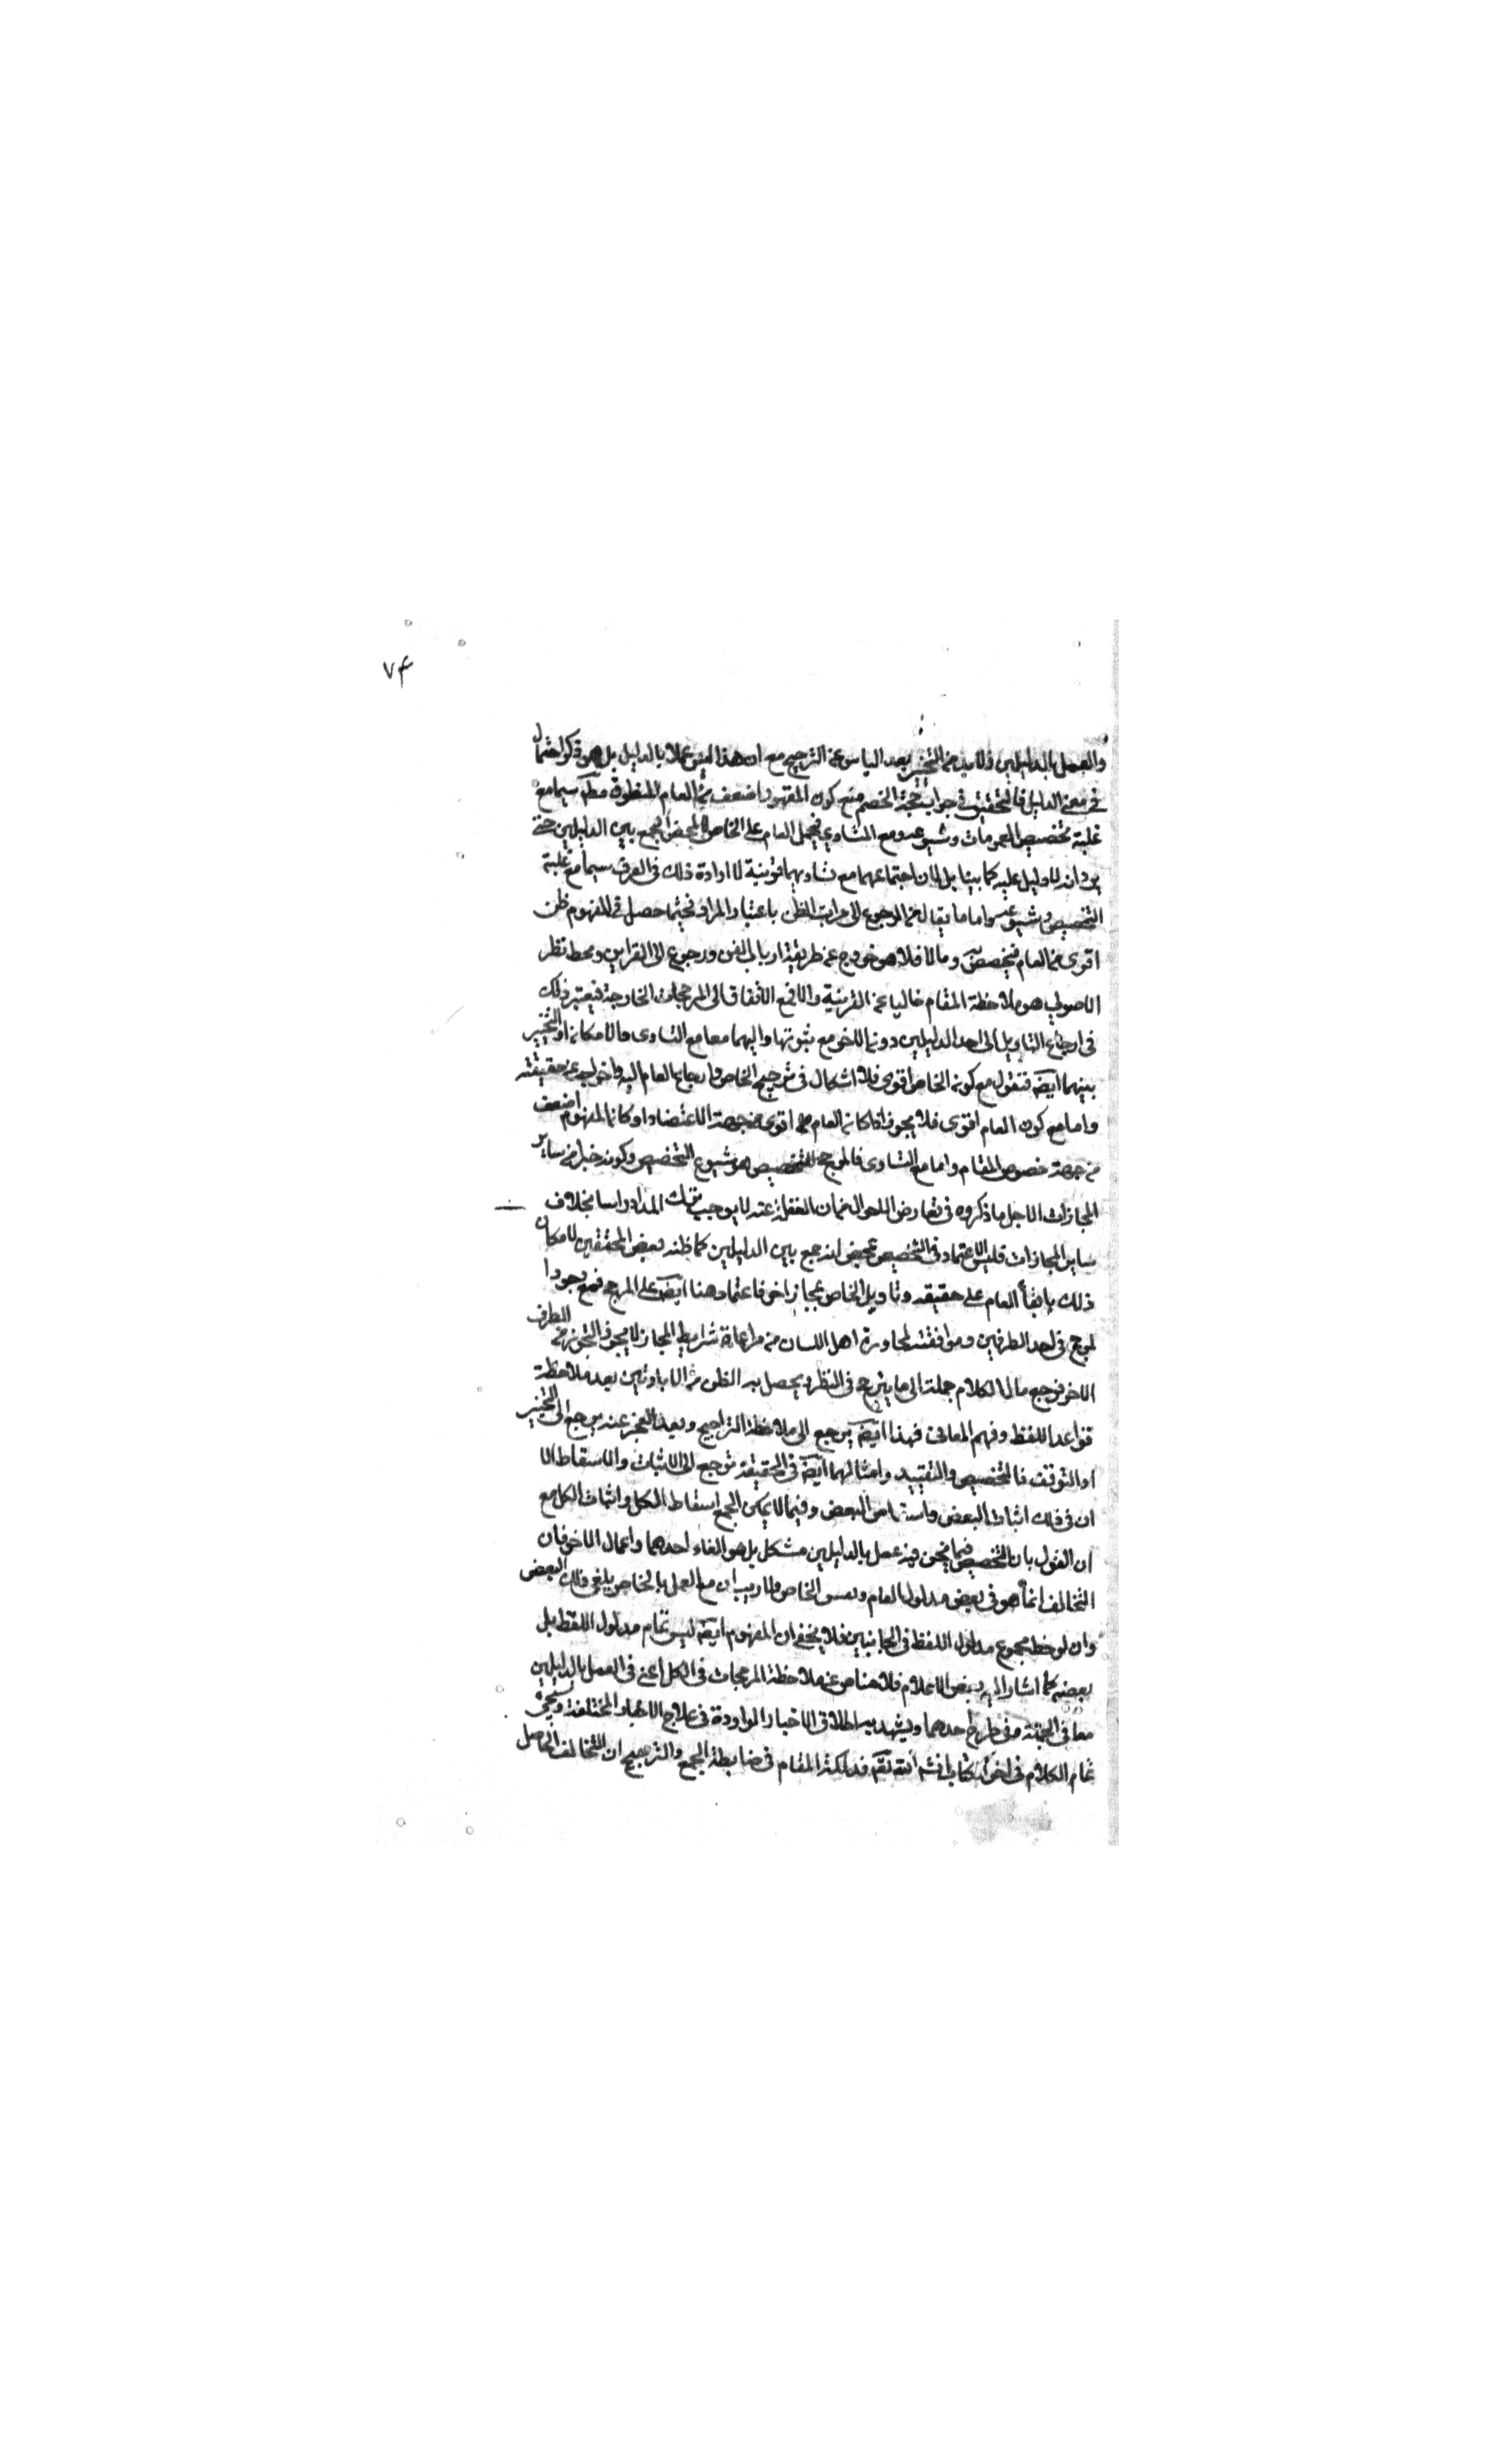 ٧۴
والعمل بالدليلين ولا بد من التخيير بعد الياس عن الترجيح مع ان هذا ليس عملا بالدليل بل هو ذكر احتمال
في معنى الدليل فالتحقيق في جواب حجة الخصم منع كون المفهوم اضعف من العام المنطوق مط سيما مع
غلبة تخصيص العمومات وشيوعه ومع التساوي فيحمل العام على الخاص لا لمحض الجمع بين الدليلين حتى
يرد انه لا دليل عليه كما بينا بل لان اجتماعهما مع تساويهما قرينة لارادة ذلك في العرف سيما مع غلبة
التخصيص وشيوعه واما ما يقال من الرجوع الى مراتب الظن باعتبار المراد فحيثما حصل في المفهوم ظن
اقوى من العام فيخصص به وما لا فلا هو خروج عن طريقة ارباب الفن ورجوع الى القراين ومحط نظر
الاصولي هو ملاحظة المقام خاليا عن القرينة والا فمع الاتفاق الى المرجحات الخارجة فيعتبر ذلك
في ارجاع التاويل الى احد الدليلين دون الاخر مع ثبوتها واليهما معا مع التساوى والامكان او التخيير
بينهما ايضً فنقول مع كون الخاص اقوى فلا اشكال في ترجيح الخاص وارجاع العام اليه واخراجه عن حقيقته
واما مع كون العام اقوى فلا يجوز اذا كان العام اقوى من جهة الاعتضاد او كان المفهوم اضعف
من جهة خصوص المقام واما مع التساوى فالمرجح للتخصيص هو شيوع التخصيص وكونه خيرا من ساير
المجازات لاجل ما ذكروه في تعارض الاحوال فان الغفلة عنه لا يوجب ترك المدار راسا بخلاف
ساير المجازات فليس الاعتماد في التخصيص بمحض انه جمع بين الدليلين كما ظنه بعض المحققين لامكان
ذلك بابقاء العام على حقيقه وتاويل الخاص بمجاز اخر فاعتماد هنا ايضً على المرجح فمع وجود
المرجح في احد الطرفين وموافقته لمحاورة اهل اللسان من مراعاة شرايط المجاز لا يجوز التجوز في الطرف
الاخر فرجع مال الكلام جملة الى ما يترجح في النظر ويحصل به الظن بعد ملاحظة
قواعد اللفظ وفهم المعاني فهذا ايضً يرجع الى ملاحظة التراجيح وبعد العجز عنه يرجع الى التخيير
او التوقف فالتخصيص والتقييد وامثالهما ايضً في الحقيقة ترجع الى الاثبات والاسقاط الا
ان في ذلك اثبات البعض واسقاط البعض وفيما لا يمكن الجمع اسقاط الكل واثبات الكل مع
ان القول بان التخصيص فيما نحن فيه عمل بالدليلين مشكل بل هو الغاء احدهما واعمال الاخر فان
التخالف انما هو في بعض مدلول العام ونفس الخاص ولا ريب ان مع العمل بالخاص يلغى ذلك البعض
وان لوحظ مجموع مدلول اللفظ في الجانبين فلا يخفى ان المفهوم ايضً ليس تمام مدلول اللفظ بل
بعضه كما اشار اليه بعض الاعلام فلا مناص عن ملاحظة المرجحات في الكل اعنى في العمل بالدليلين
معا في الجملة وفي طرح احدهما ويشهد به اطلاق الاخبار الواردة في علاج الاخبار المختلفة وسيجئ
تمام الكلام في اخر الكتاب انشم الله تعم فذلكة المقام في ضابطة الجمع والترجيح ان التخالف الحاصل